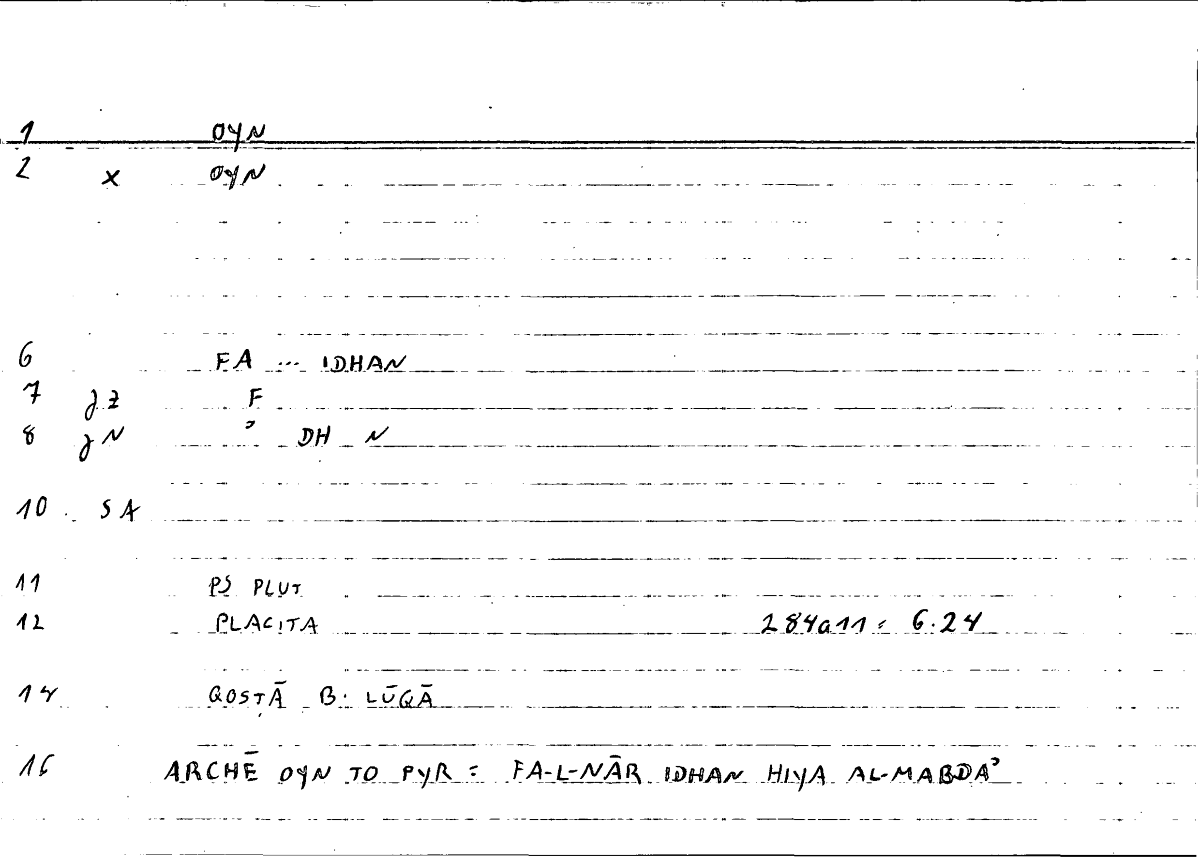 1 OYN
2 x OYN
6 FA ... IDHAN
7 jz F
8 jN ʾ DH N
10 SA
11 PS PLUT
12 PLACITA 284a11 = 6.24
14 QOSTĀ B. LŪQĀ
16 ARCHĒ OYN TO PYR = FA-L-NĀR IDHAN HIYA AL-MABDAʾ